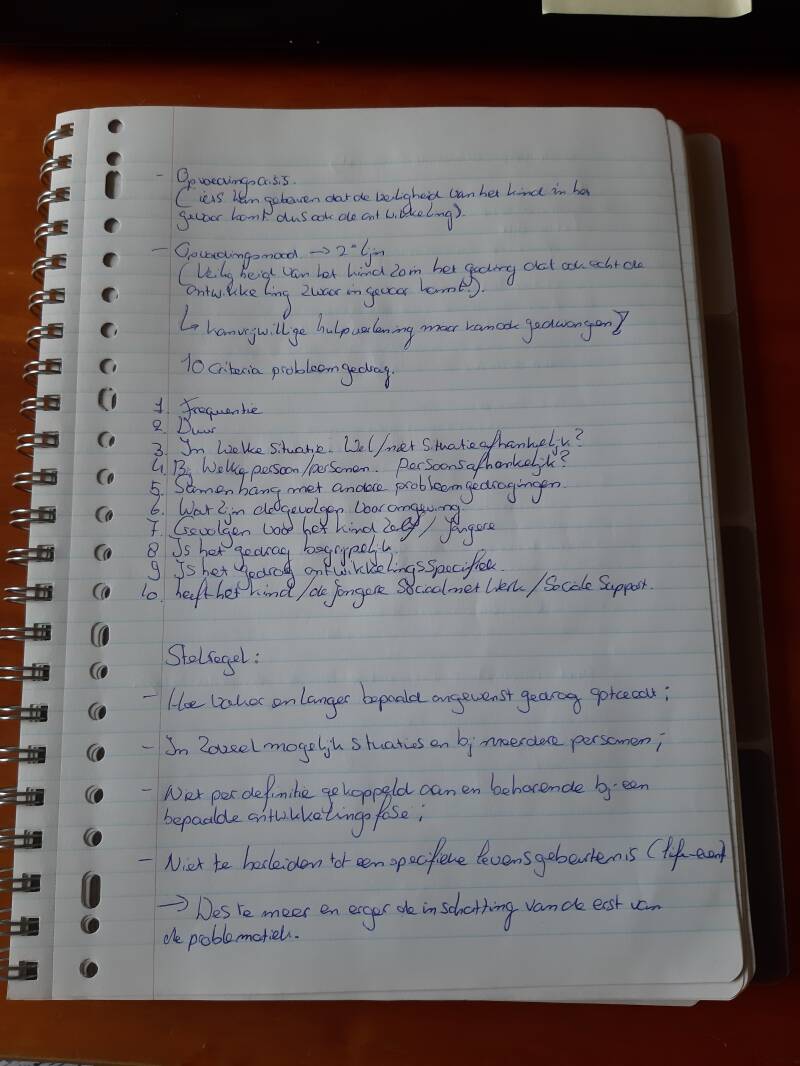 - Opvoedingscrisis.
( iets kan gebeuren dat de veiligheid van het kind in het
gevaar komt dus ook de ontwikkeling).
- Opvoedingsnood → 2e lijn
( Veiligheid van het kind zo in het geding dat ook echt de
ontwikkeling zwaar in gevaar komt!).
↳ kan vrijwillige hulpverlening maar kan ook gedwongen
10 Criteria probleemgedrag.
1. Frequentie
2. Duur
3. In welke situatie. Wel/niet situatieafhankelijk?
4. Bij welke persoon/personen. Persoonsafhankelijk?
5. Samenhang met andere probleemgedragingen.
6. Wat zijn de gevolgen voor omgeving.
7. Gevolgen voor het kind zelf/ jongere
8. Is het gedrag begrijpelijk.
9. Is het gedrag ontwikkelingsspecifiek.
10. heeft het kind/de jongere sociaal netwerk/Sociale Support.
Stelregel:
- Hoe vaker en langer bepaald ongewenst gedrag optreedt;
- In zoveel mogelijk situaties en bij meerdere personen;
- Niet per definitie gekoppeld aan en behorende bij een
bepaalde ontwikkelingsfase;
- Niet te herleiden tot een specifieke levensgebeurtenis (life-event)
→ Des te meer en erger de inschatting van de erst van
de problematiek.